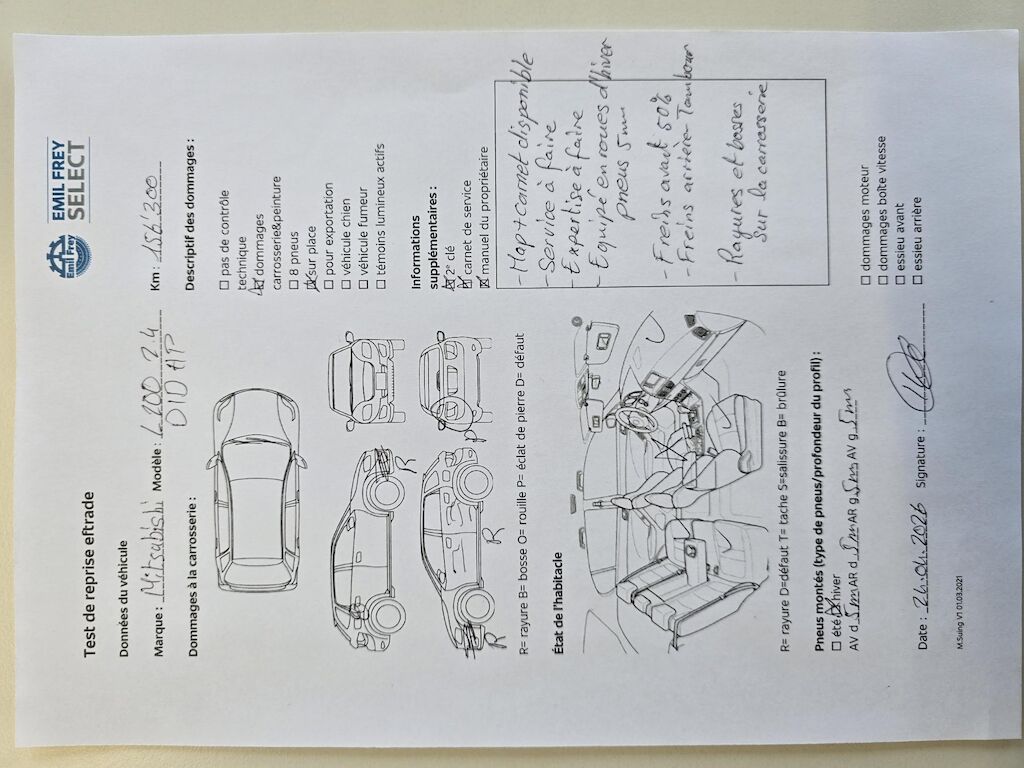 Emil Frey
EMIL FREY
SELECT
Test de reprise eftrade
Données du véhicule
Marque : Mitsubishi Modèle : L200 2.4 Km : 156'300
DID HP
Dommages à la carrosserie :
Descriptif des dommages :
☐ pas de contrôle
technique
☒ dommages
carrosserie&peinture
☐ 8 pneus
☒ sur place
☐ pour exportation
☐ véhicule chien
☐ véhicule fumeur
☐ témoins lumineux actifs
Informations
supplémentaires :
☒ 2e clé
☒ carnet de service
☒ manuel du propriétaire
R
P
R
R
R= rayure B= bosse O= rouille P= éclat de pierre D= défaut
- Map+carnet disponible
- Service à faire
- Expertise à faire
- Equipé en roues d'hiver
pneus 5mm
- Freins avant 50%
- Freins arrière Tambour
- Rayures et bosses
sur la carrosserie.
État de l'habitacle
R= rayure D=défaut T= tache S=salissure B= brûlure
Pneus montés (type de pneus/profondeur du profil) :
☐ été ☒ hiver
AV d 5mm AR d 5mm AR g 5mm AV g 5mm
☐ dommages moteur
☐ dommages boîte vitesse
☐ essieu avant
☐ essieu arrière
Date : 24.04.2026 Signature :
M.Suing V1 01.03.2021